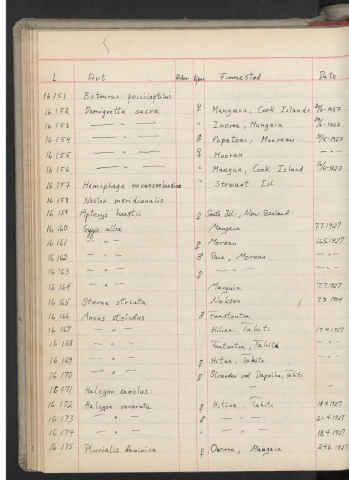 L Art Alder Kjøn Finnested Dato
16151 Botaurus poeciloptilus
16152 Demigretta sacra ♀ Mangaia, Cook Islands 6-1927
16153 — " — " Inorea, Mangaia 6-1927
16154 — " — ♂ Popetoai, Mooreau 5-1927
16155 — " — ♀ Moorau — " —
16156 — " — " Mangua, Cook Island 6-1927
16157 Hemiphaga novaeseelandiae " Stewart Isl.
16158 Nestor meridionalis
16159 Apteryx haastii ♀ South Isl., New Zealand
16160 Gygis alba Mangaia 7.7.1927
16161 — " — ♀ Moreau 16.5.1927
16162 — " — ♂ Paia, Moreau — " —
16163 — " — ♀ — " — — " —
16164 — " — Manguia 7.7.1927
16165 Sterna striata Nelson 7.3.1904
16166 Anous stolidus ♂ Faastautia
16167 — " — Hitiaa, Tahiti 19.4.1927
16168 — " — Fautautia, Tahiti — " —
16169 — " — ♀ Hitiaa, Tahiti — " —
16170 — " — ♀ Stranden ved Papeiha, Tahiti
16171 Halcyon sanctus —
16172 Halcyon venerata ♀ Hitiaa, Tahiti 18.4.1927
16173 — " — ♂ — " — 21.4.1927
16174 — " — " — " — 18.4.1927
16175 Pluvialis dominica ♀ Oxorea, Mangaia 24.6.1927